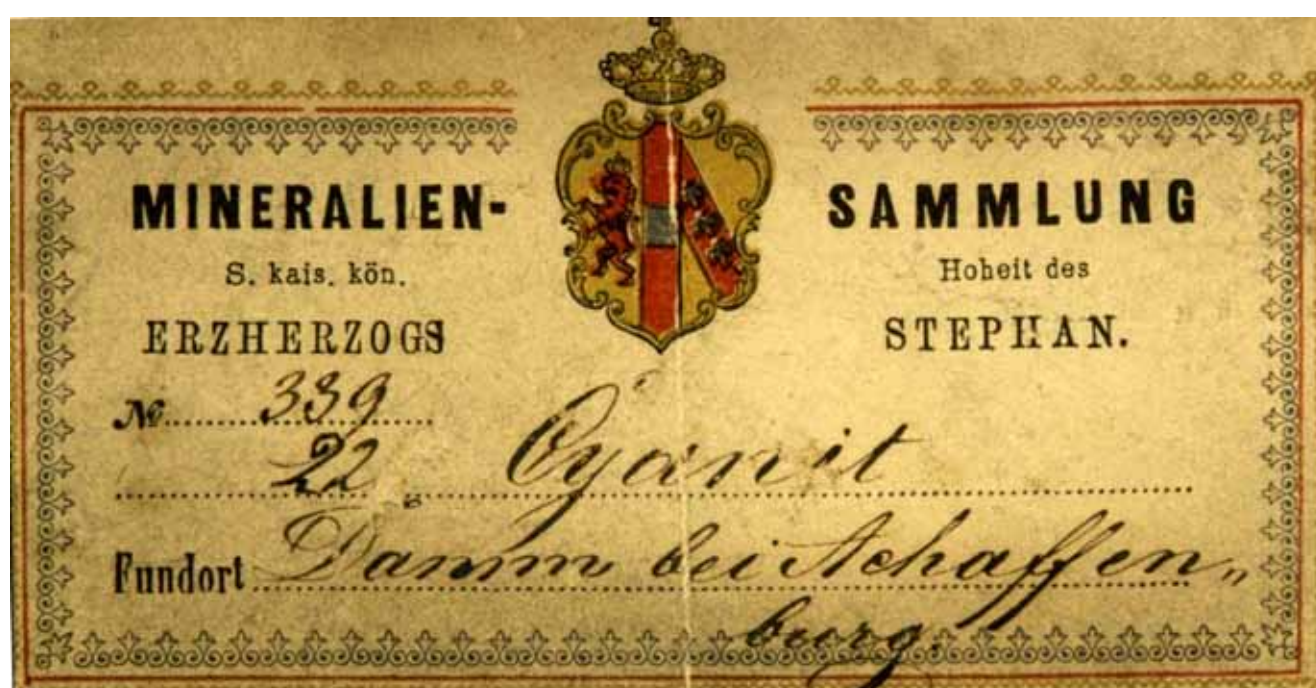 MINERALIEN-SAMMLUNG
S. kais. kön. Hoheit des
ERZHERZOGS STEPHAN.
No 339
22 Cyanit
Fundort Damm bei Achaffen„
burg.